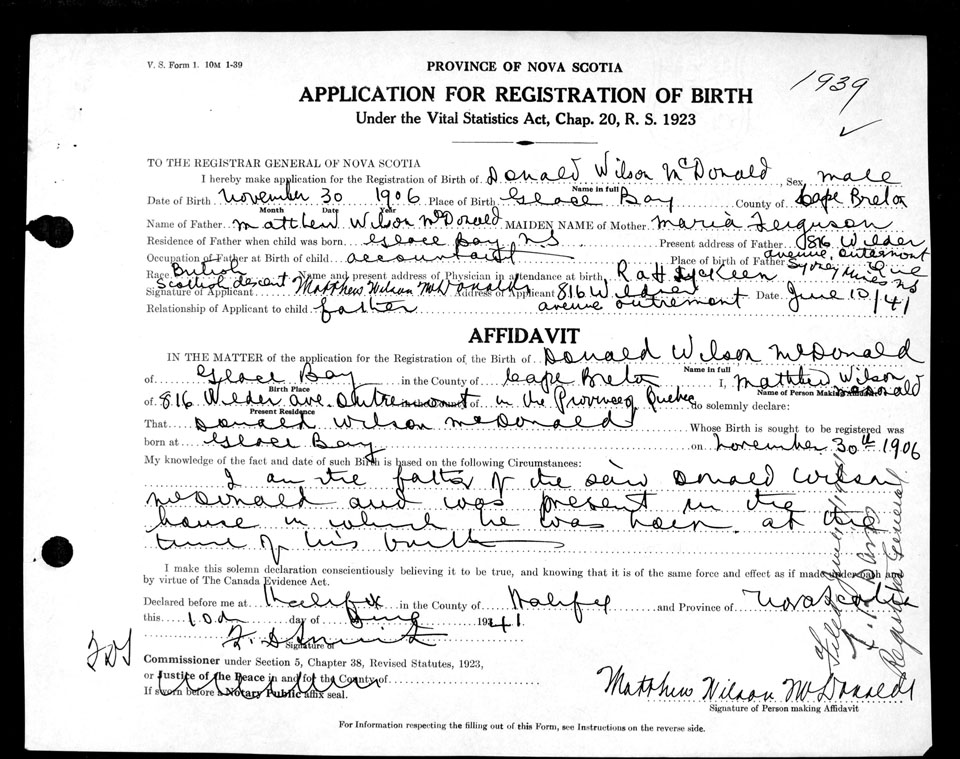 V. S. Form 1. 10M 1-39
PROVINCE OF NOVA SCOTIA
1939
APPLICATION FOR REGISTRATION OF BIRTH
Under the Vital Statistics Act, Chap. 20, R. S. 1923
TO THE REGISTRAR GENERAL OF NOVA SCOTIA
I hereby make application for the Registration of Birth of Donald Wilson McDonald, Sex male
Name in full
Date of Birth November 30 1906 Place of Birth Glace Bay County of Cape Breton
Month Date Year
Name of Father Matthew Wilson McDonald MAIDEN NAME of Mother Maria Ferguson
Residence of Father when child was born Glace Bay NS Present address of Father 816 Wilder
avenue, Outremont
Occupation of Father at Birth of child accountant Place of birth of Father Sydney Mines NS
Race British
Scottish descent Name and present address of Physician in attendance at birth
Signature of Applicant Matthew Wilson McDonald Address of Applicant 816 Wilder Date June 10/41
Relationship of Applicant to child father avenue Outremont
AFFIDAVIT
IN THE MATTER of the application for the Registration of the Birth of Donald Wilson McDonald
Name in full
of Glace Bay in the County of Cape Breton I, Matthew Wilson
Birth Place
McDonald
Name of Person Making Affidavit
of 816 Wilder Ave. Outremont in the Province of Quebec do solemnly declare:
Present Residence
That Donald Wilson McDonald Whose Birth is sought to be registered was
born at Glace Bay on November 30th 1906
My knowledge of the fact and date of such Birth is based on the following Circumstances:
I am the father of the said Donald Wilson
McDonald and was present in the
house in which he was born at the
time of his birth
I make this solemn declaration conscientiously believing it to be true, and knowing that it is of the same force and effect as if made under oath and
by virtue of The Canada Evidence Act.
Declared before me at Halifax in the County of Halifax and Province of Nova Scotia
this 10th day of June 1941
Signature of
Commissioner under Section 5, Chapter 38, Revised Statutes, 1923,
or Justice of the Peace in and for the County of
If sworn before a Notary Public affix seal.
Matthew Wilson McDonald
Signature of Person making Affidavit
Registrar General
For Information respecting the filling out of this Form, see Instructions on the reverse side.